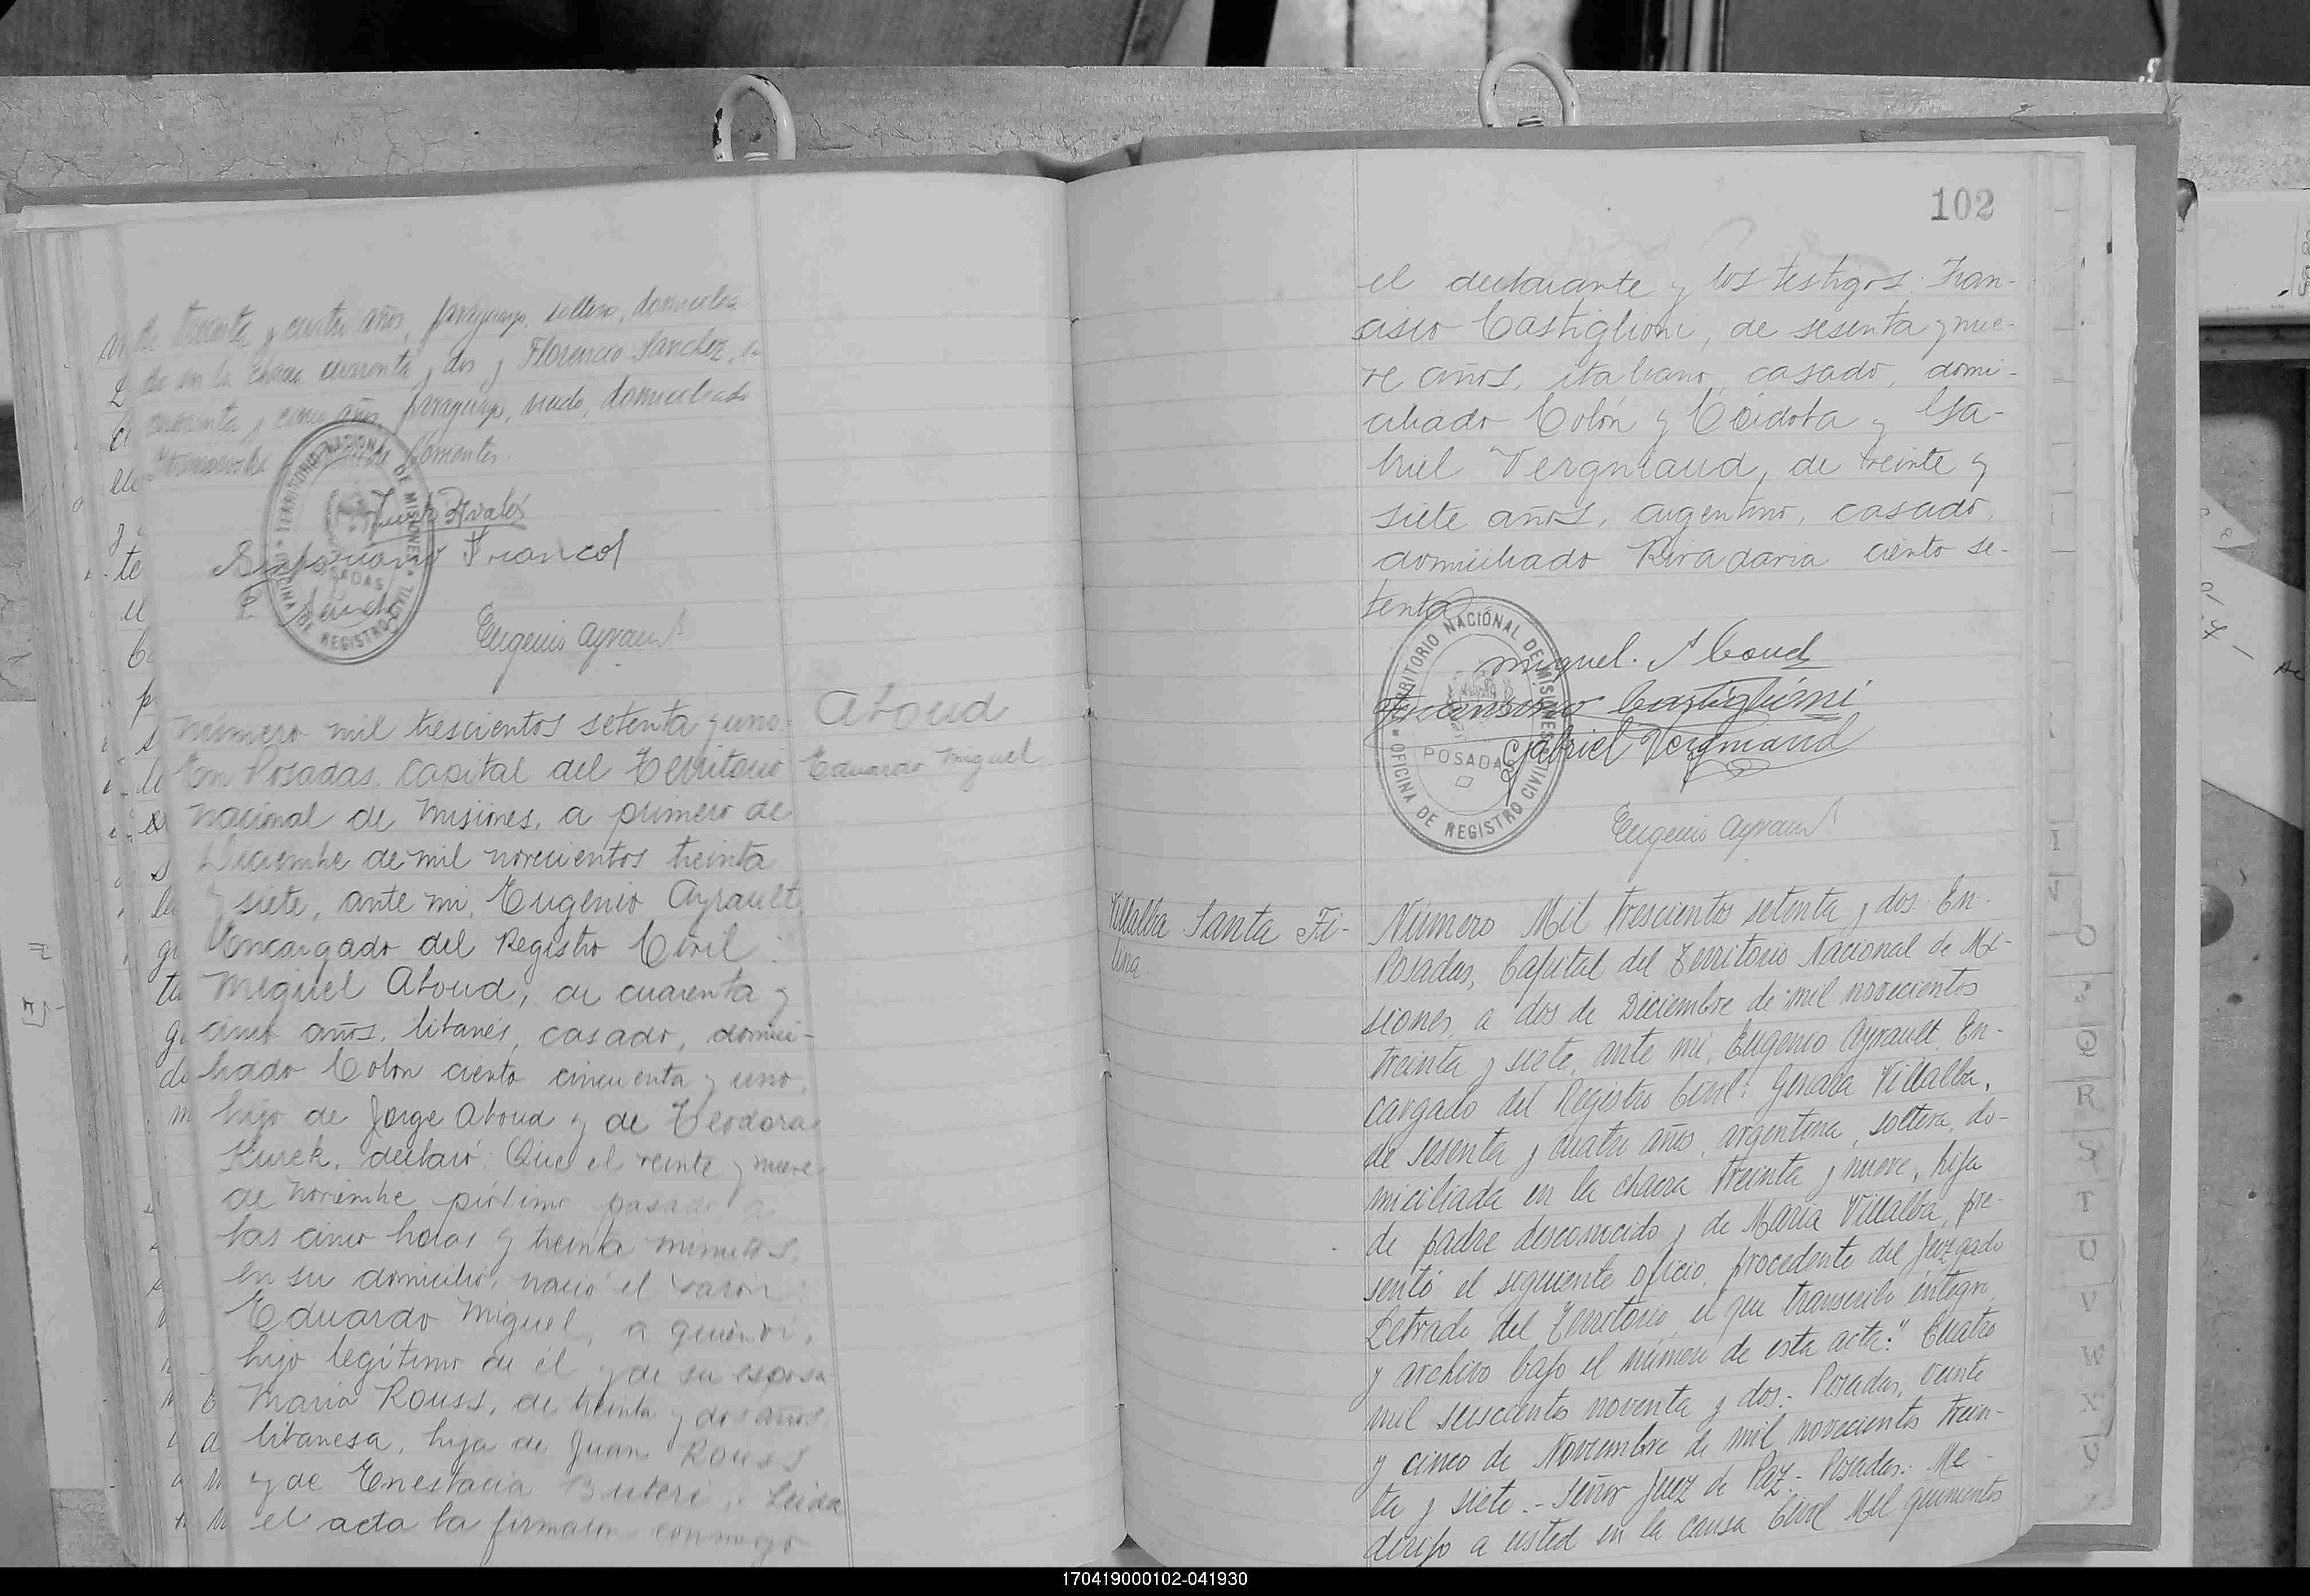 de treinta y cuatro años, paraguayo, soltero, domicilia-
do en la chacra cuarenta y dos y Florencio Sanchez, de
cuarenta y cinco años, paraguayo, viudo, domiciliado
Corrientes.
TERRITORIO NACIONAL DE MISIONES
POSADAS
OFICINA DE REGISTRO CIVIL
Avalos
Franco
Sanchez
Eugenio Ayrault
Número mil trescientos setenta y uno.
En Posadas, Capital del Territorio
Nacional de Misiones, a primero de
Diciembre de mil novecientos treinta
y siete, ante mi, Eugenio Ayrault
Encargado del Registro Civil:
Miguel Aboud, de cuarenta y
cinco años, libanés, casado, domici-
liado Colon ciento cincuenta y uno,
hijo de Jorge Aboud y de Teodora
Kurek, declaró: Que el veinte y nueve
de Noviembre próximo pasado a
las cinco horas y treinta minutos,
en su domicilio, nació el varón:
Eduardo Miguel, a quien vi,
hijo legítimo de él y de su esposa
Maria Rouss, de treinta y dos años,
libanesa, hija de Juan Rouss
y de Enestacia Buteri. Leida
el acta la firmaron conmigo
Aboud
Eduardo Miguel
102
el declarante y los testigos: Fran-
cisco Castiglioni, de sesenta y nue-
ve años, italiano, casado, domi-
ciliado Colón y Córdoba y Ga-
briel Vergniaud, de veinte y
siete años, argentino, casado,
domiciliado Rivadavia ciento se-
tenta
TERRITORIO NACIONAL DE MISIONES
POSADAS
OFICINA DE REGISTRO CIVIL
Miguel. Aboud
Castiglioni
Gabriel Vergniaud
Eugenio Ayrault
Villalba Santa Fi-
lina.
Número Mil trescientos setenta y dos. En
Posadas, Capital del Territorio Nacional de Mi-
siones, a dos de Diciembre de mil novecientos
treinta y siete, ante mi, Eugenio Ayrault, En-
cargado del Registro Civil: Genara Villalba,
de sesenta y cuatro años, argentina, soltera, do-
miciliada en la chacra treinta y nueve, hija
de padre desconocido y de María Villalba, pre-
sentó el siguiente oficio, procedente del Juzgado
Letrado del Territorio, el que transcribo integro,
y archivo bajo el número de esta acta: "Cuatro
mil seiscientos noventa y dos: Posadas, veinte
y cinco de Noviembre de mil novecientos trein-
ta y siete.- Señor Juez de Paz.- Posadas.- Me
dirijo a usted en la causa Civil Mil quinientos
Q
R
S
T
U
V
W
X
Y
Z
170419000102-041930